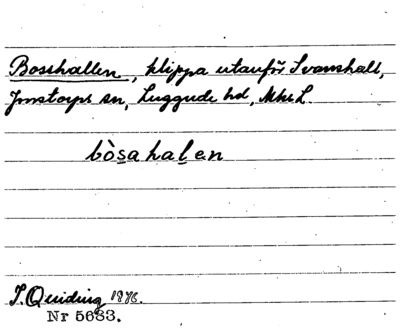 Bosshallen, klippa utanför Svanshall,
Jonstorps sn, Luggude hd, Mhs L.
bòsahalen
J. Quiding 1876.
Nr 5683.